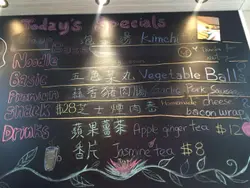 Today's Specials
Kimchi
Noodle
Basic 五色菜丸 Vegetable Ball
Premium 蒜香豬肉腸 Garlic Pork Sausage
Snack $28 芝士煙肉卷 Homemade cheese
bacon wrap
Drinks 蘋果薑茶 Apple ginger tea $12
香片 Jasmine tea $8